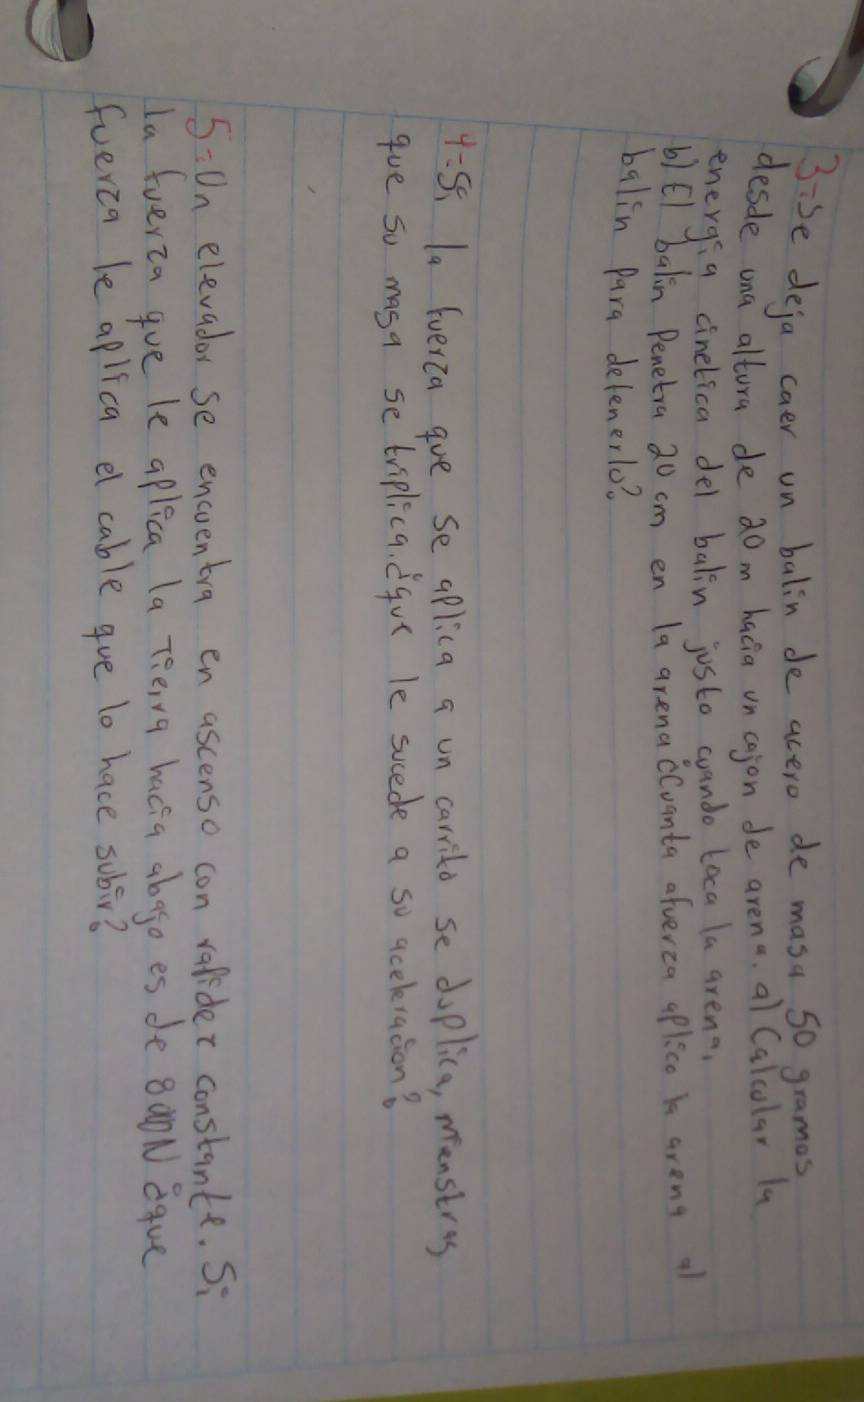 3-Se deja caer un balin de acero de masa 50 gramos
desde una altura de 20 m hacia un cajon de arena. a) Calcular la
energia cinetica del balin justo cuando toca la arena,
b) El balin Penetra 20 cm en la arena ¿Cuanta afuerza aplico la arena al
balin para detenerlo?
4-Si la fuerza que se aplica a un carrito se duplica, mienstras
que su masa se triplica. ¿que le sucede a su aceleracion?
5-Un elevador se encuentra en ascenso con rapidez constante. Si
la fuerza que le aplica la Tierra hacia abajo es de 800N ¿que
fuerza le aplica el cable que lo hace subir?